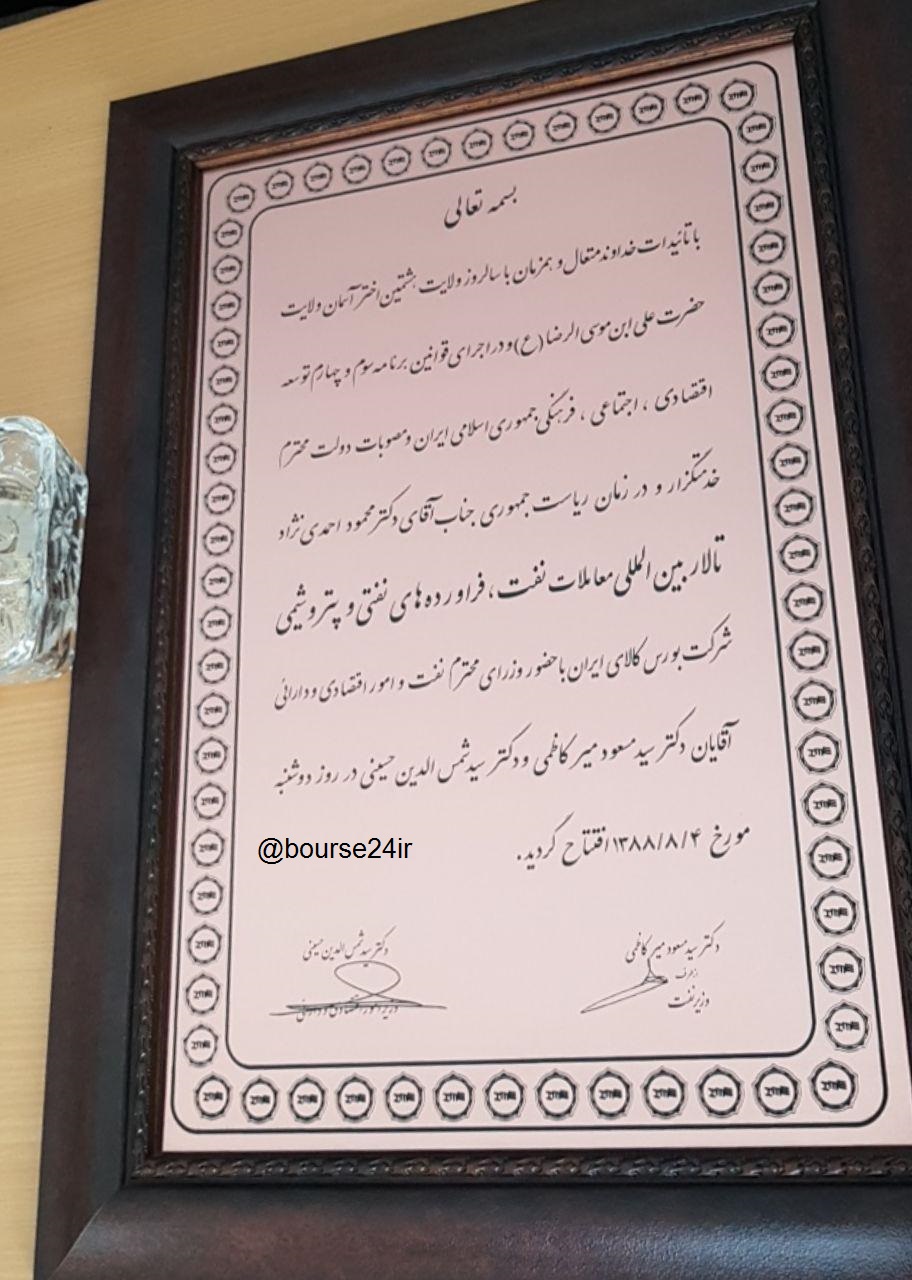 بسمه تعالی
با تائیدات خداوند متعال و همزمان با سالروز ولایت هشتمین اختر آسمان ولایت
حضرت علی ابن موسی الرضا (ع) و در اجرای قوانین برنامه سوم و چهارم توسعه
اقتصادی ، اجتماعی ، فرهنگی جمهوری اسلامی ایران و مصوبات دولت محترم
خدمتگزار و در زمان ریاست جمهوری جناب آقای دکتر محمود احمدی نژاد
تالار بین المللی معاملات نفت ، فراورده های نفتی و پتروشیمی
شرکت بورس کالای ایران با حضور وزرای محترم نفت و امور اقتصادی و دارائی
آقایان دکتر سید مسعود میرکاظمی و دکتر سید شمس الدین حسینی در روز دوشنبه
مورخ ۱۳۸۸/۸/۴ افتتاح گردید.
@bourse24ir
دکتر سید مسعود میرکاظمی
از طرف
وزیر نفت
دکتر سید شمس الدین حسینی
وزیر امور اقتصادی و دارائی